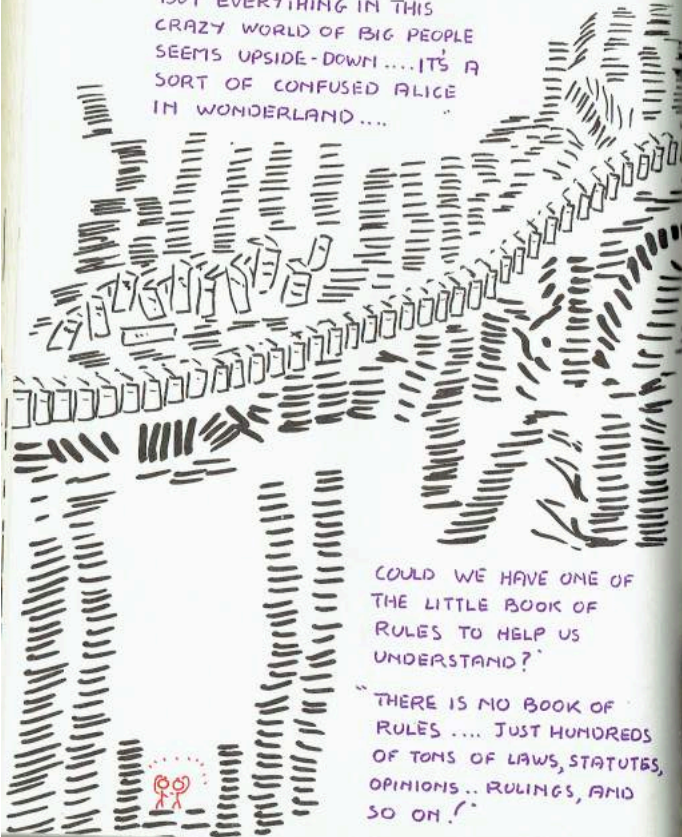 BUT EVERYTHING IN THIS
CRAZY WORLD OF BIG PEOPLE
SEEMS UPSIDE-DOWN .... IT'S A
SORT OF CONFUSED ALICE
IN WONDERLAND .... "
COULD WE HAVE ONE OF
THE LITTLE BOOK OF
RULES TO HELP US
UNDERSTAND?"
"THERE IS NO BOOK OF
RULES .... JUST HUNDREDS
OF TONS OF LAWS, STATUTES,
OPINIONS.. RULINGS, AND
SO ON!"